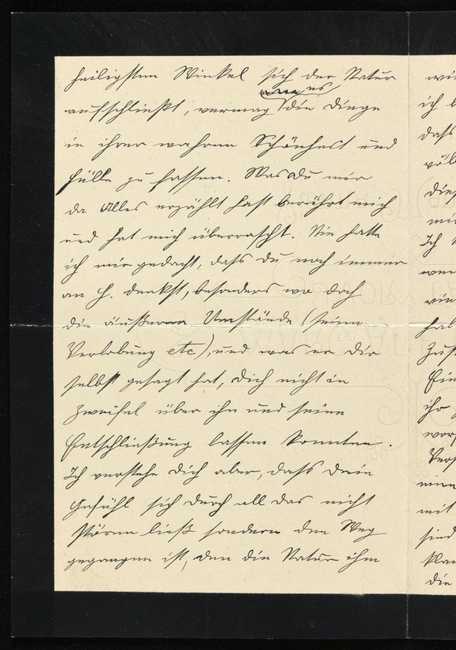 heiligsten Winkel sich der Natur
aufschließt, vermag es die Dinge
in ihrer wahren Schönheit und
Fülle zu fassen. Was Du mir
da Alles erzählt hast berührt mich
und hat mich überrascht. Nie hatte
ich mir gedacht, daß du noch immer
an H. denkst, besonders wo doch
die äußeren Umstände (seine
Verlobung etc), und was er Dir
selbst gesagt hat, Dich nicht in
Zweifel über ihn und seine
Entschließung lassen konnten.
Ich verstehe Dich aber, daß Dein
Gefühl sich durch all das nicht
stören ließ sondern den Weg
gegangen ist, den die Natur ihm
ich
daß
mir
Ich
hab
ihr
mit
sind
die